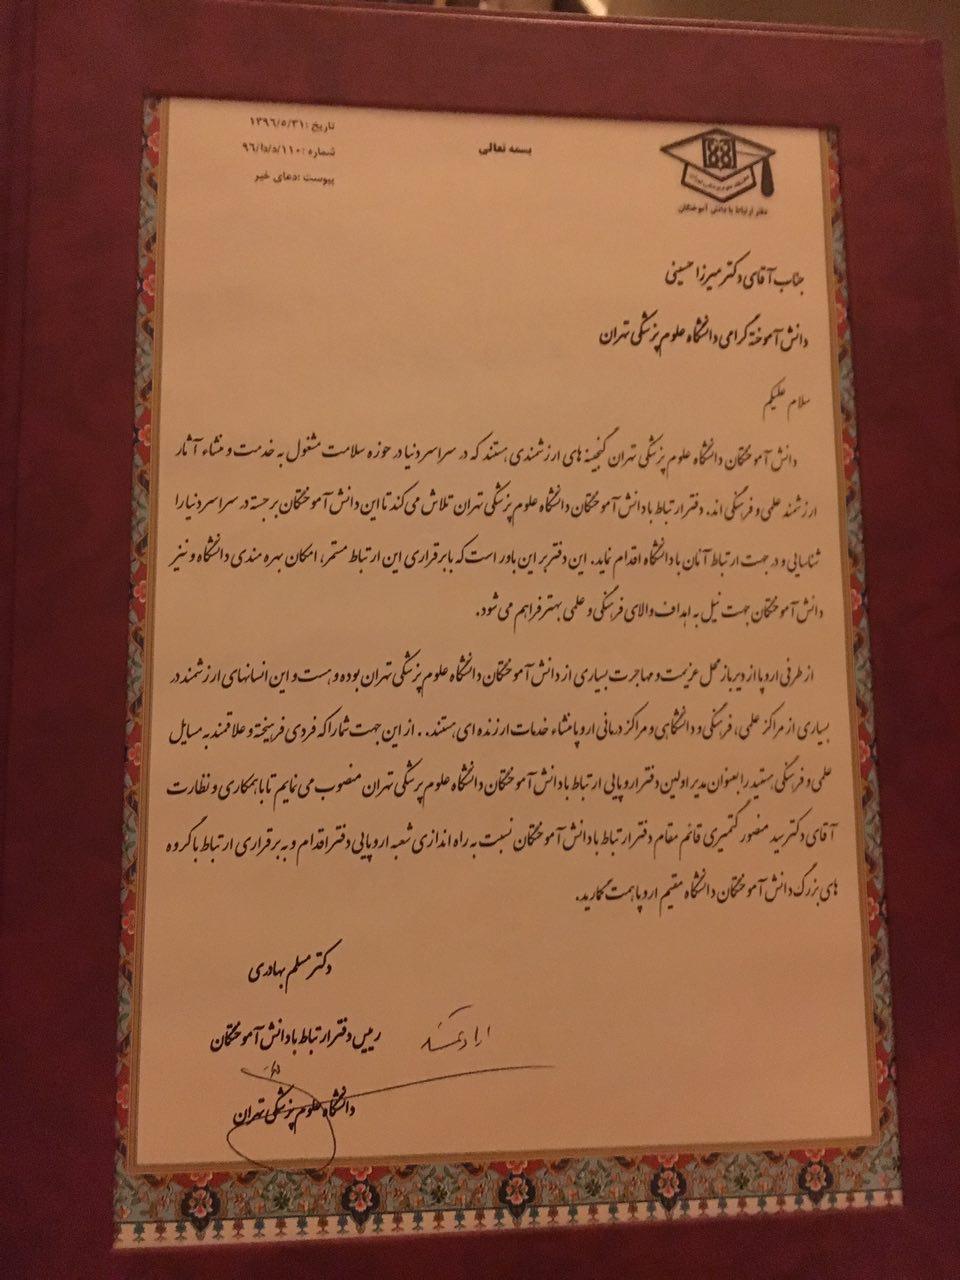 تاریخ :۱۳۹۶/۵/۳۱
شماره :۱۱۰/د/دا/۹۶
پیوست :دعای خیر
بسمه تعالی
دفتر ارتباط با دانش آموختگان
جناب آقای دکتر میرزا حسینی
دانش آموخته گرامی دانشگاه علوم پزشکی تهران
سلام علیکم
دانش آموختگان دانشگاه علوم پزشکی تهران گنجینه های ارزشمندی هستند که در سراسر دنیا در حوزه سلامت مشغول به خدمت و منشاء آثار
ارزشمند علمی و فرهنگی اند. دفتر ارتباط با دانش آموختگان دانشگاه علوم پزشکی تهران تلاش می کند تا این دانش آموختگان برجسته در سراسر دنیا را
شناسایی و در جهت ارتباط آنان با دانشگاه اقدام نماید. این دفتر بر این باور است که با برقراری این ارتباط مستمر، امکان بهره مندی دانشگاه و نیز
دانش آموختگان جهت نیل به اهداف والای فرهنگی و علمی بهتر فراهم می شود.
از طرفی اروپا از دیرباز محل عزیمت و مهاجرت بسیاری از دانش آموختگان دانشگاه علوم پزشکی تهران بوده و هست و این انسانهای ارزشمند در
بسیاری از مراکز علمی، فرهنگی و دانشگاهی و مراکز درمانی اروپا منشاء خدمات ارزنده ای هستند. . از این جهت شما را که فردی فرهیخته و علاقمند به مسایل
علمی و فرهنگی هستید را بعنوان مدیر اولین دفتر اروپایی ارتباط با دانش آموختگان دانشگاه علوم پزشکی تهران منصوب می نمایم تا با همکاری و نظارت
آقای دکتر سید منصور کشمیری قائم مقام دفتر ارتباط با دانش آموختگان نسبت به راه اندازی شعبه اروپایی دفتر اقدام و به برقراری ارتباط با گروه
های بزرگ دانش آموختگان دانشگاه مقیم اروپا همت گمارید.
دکتر مسلم بهادری
رییس دفتر ارتباط با دانش آموختگان
ارادتمند
دانشگاه علوم پزشکی تهران